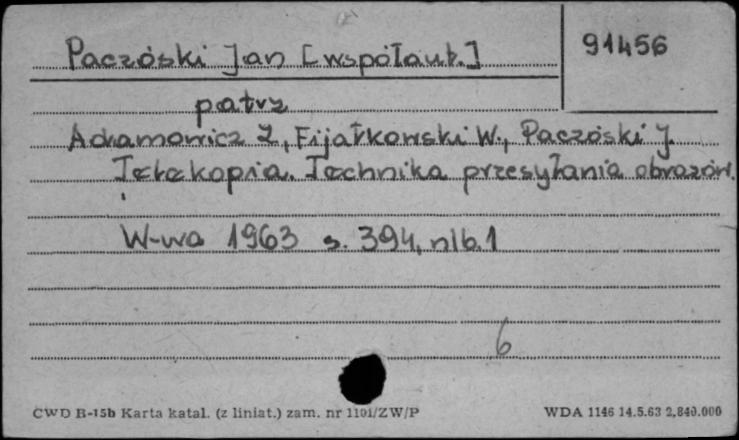 Paczóski Jan [współaut.] 91456
patrz
Adamowicz Z, Fijałkowski W., Paczóski J.
Telekopia. Technika przesyłania obrazów.
W-wa 1963 s. 394, nlb. 1
6
CWD B-15b Karta katal. (z liniat.) zam. nr 1101/ZW/P WDA 1146 14.5.63 2,840.000